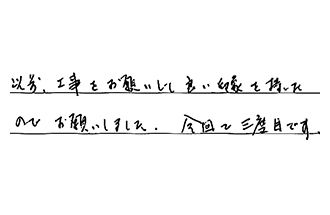 以前、工事をお願いして良い印象を持った
のでお願いしました。今回で三度目です。